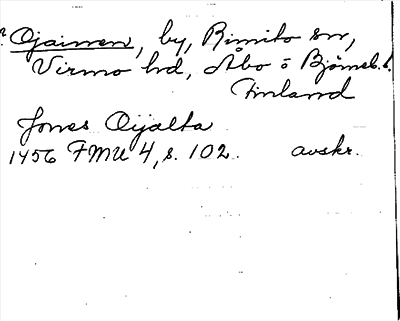 ? Ojainen, by, Rimito sn,
Virmo hd, Åbo o Björneb. l.
Finland
Jones Oijalta
1456 FMU 4, s. 102. avskr.